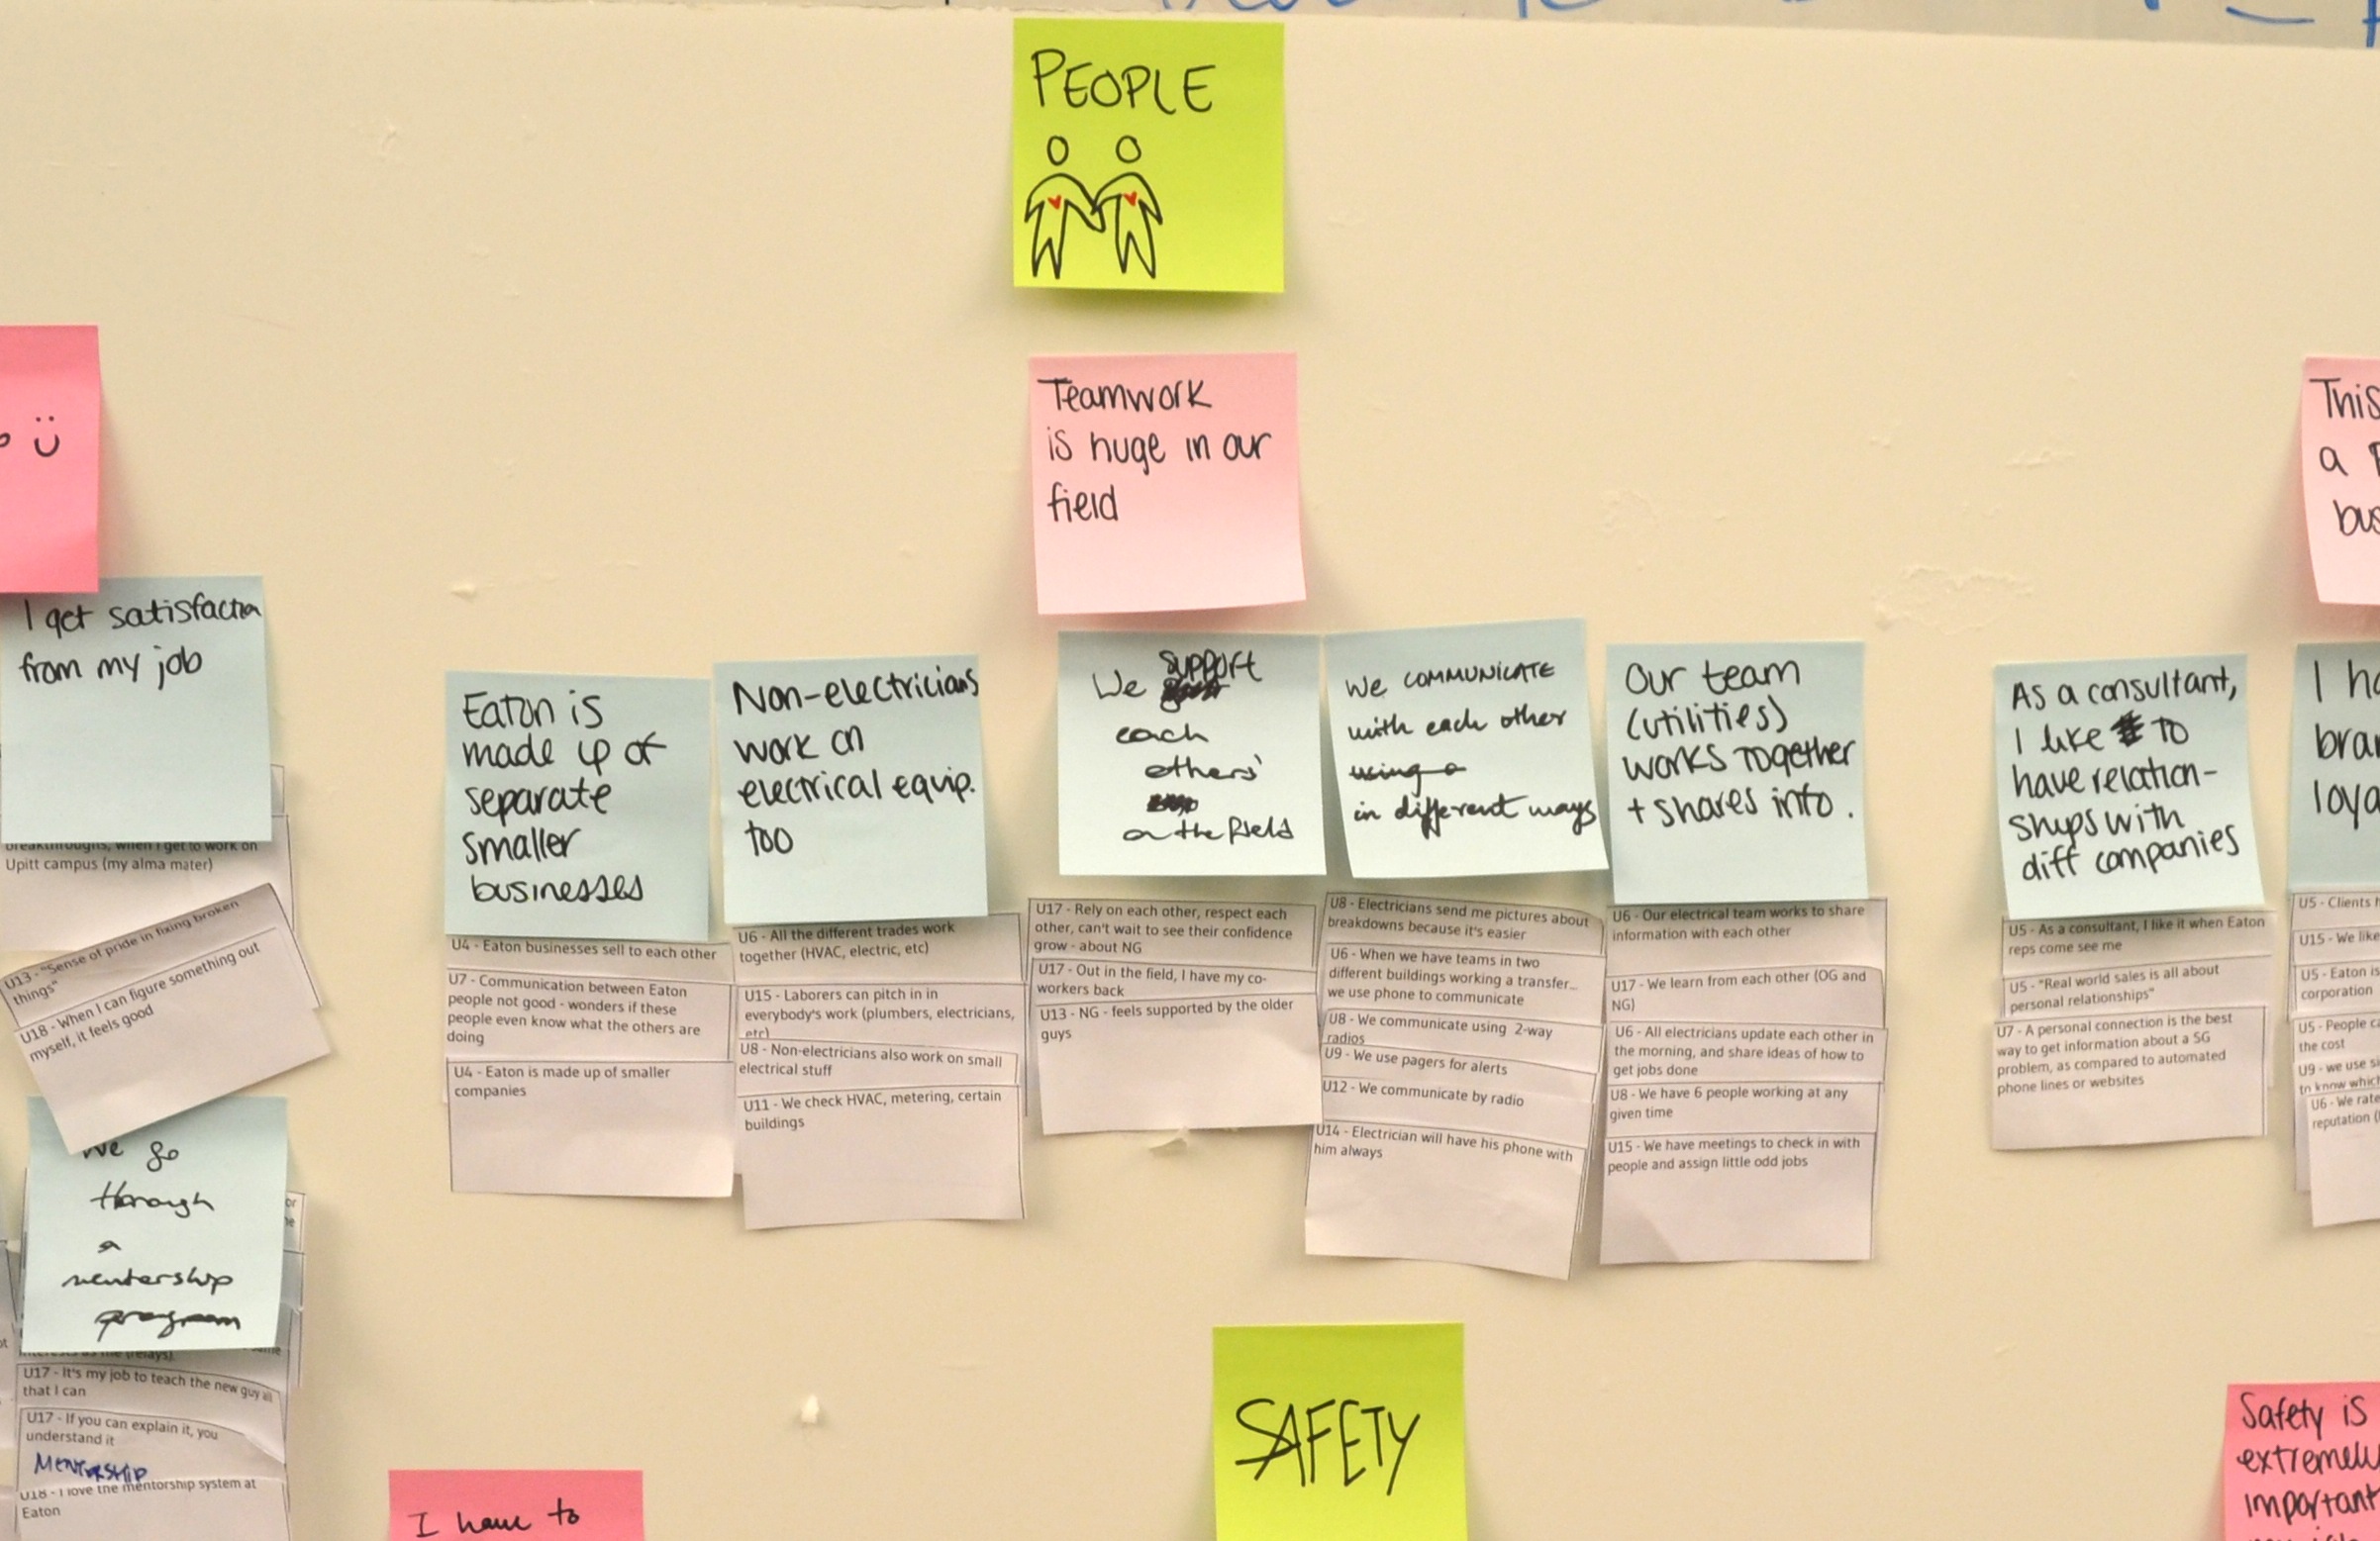 PEOPLE
Teamwork
is huge in our
field
This
a
bus
I get satisfaction
from my job
Upitt campus (my alma mater)
U13 - "Sense of pride in fixing broken
things"
U18 - When I can figure something out
myself, it feels good
We go
through
a
mentorship
program
U17 - It's my job to teach the new guy all
that I can
U17 - If you can explain it, you
understand it
MENTORSHIP
U18 - I love the mentorship system at
Eaton
Eaton is
made up of
separate
smaller
businesses
U4 - Eaton businesses sell to each other
U7 - Communication between Eaton
people not good - wonders if these
people even know what the others are
doing
U4 - Eaton is made up of smaller
companies
Non-electricians
work on
electrical equip.
too
U6 - All the different trades work
together (HVAC, electric, etc)
U15 - Laborers can pitch in in
everybody's work (plumbers, electricians,
etc)
U8 - Non-electricians also work on small
electrical stuff
U11 - We check HVAC, metering, certain
buildings
We support
each
others'
on the field
U17 - Rely on each other, respect each
other, can't wait to see their confidence
grow - about NG
U17 - Out in the field, I have my co-
workers back
U13 - NG - feels supported by the older
guys
We COMMUNICATE
with each other
using a
in different ways
U8 - Electricians send me pictures about
breakdowns because it's easier
U6 - When we have teams in two
different buildings working a transfer...
we use phone to communicate
U8 - We communicate using 2-way
radios
U9 - We use pagers for alerts
U12 - We communicate by radio
U14 - Electrician will have his phone with
him always
Our team
(utilities)
works together
+ shares info.
U6 - Our electrical team works to share
information with each other
U17 - We learn from each other (OG and
NG)
U6 - All electricians update each other in
the morning, and share ideas of how to
get jobs done
U8 - We have 6 people working at any
given time
U15 - We have meetings to check in with
people and assign little odd jobs
As a consultant,
I like to
have relation-
ships with
diff companies
U5 - As a consultant, I like it when Eaton
reps come see me
U5 - "Real world sales is all about
personal relationships"
U7 - A personal connection is the best
way to get information about a SG
problem, as compared to automated
phone lines or websites
I ha
bran
loya
U5 - Clients
U15 - We like
U5 - Eaton is
corporation
U5 - People ca
the cost
U9 - we use si
to know which
U6 - We rate
reputation
I have to
SAFETY
Safety is
extremely
important